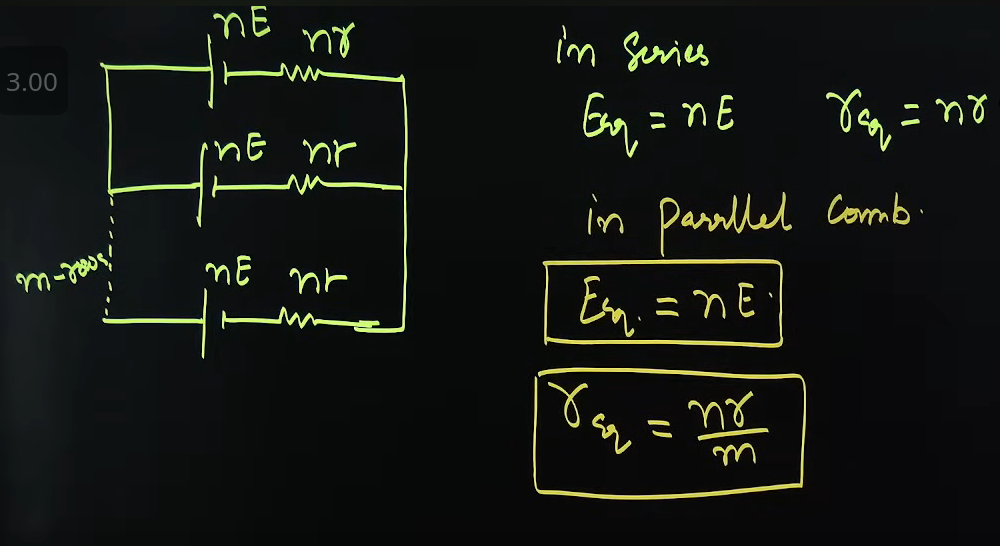 3.00
nE
nr
nE
nr
nE
nr
m-rows
in Series
Eeq = nE
req = nr
in Parrllel Comb.
Eeq. = nE
req = nr/m